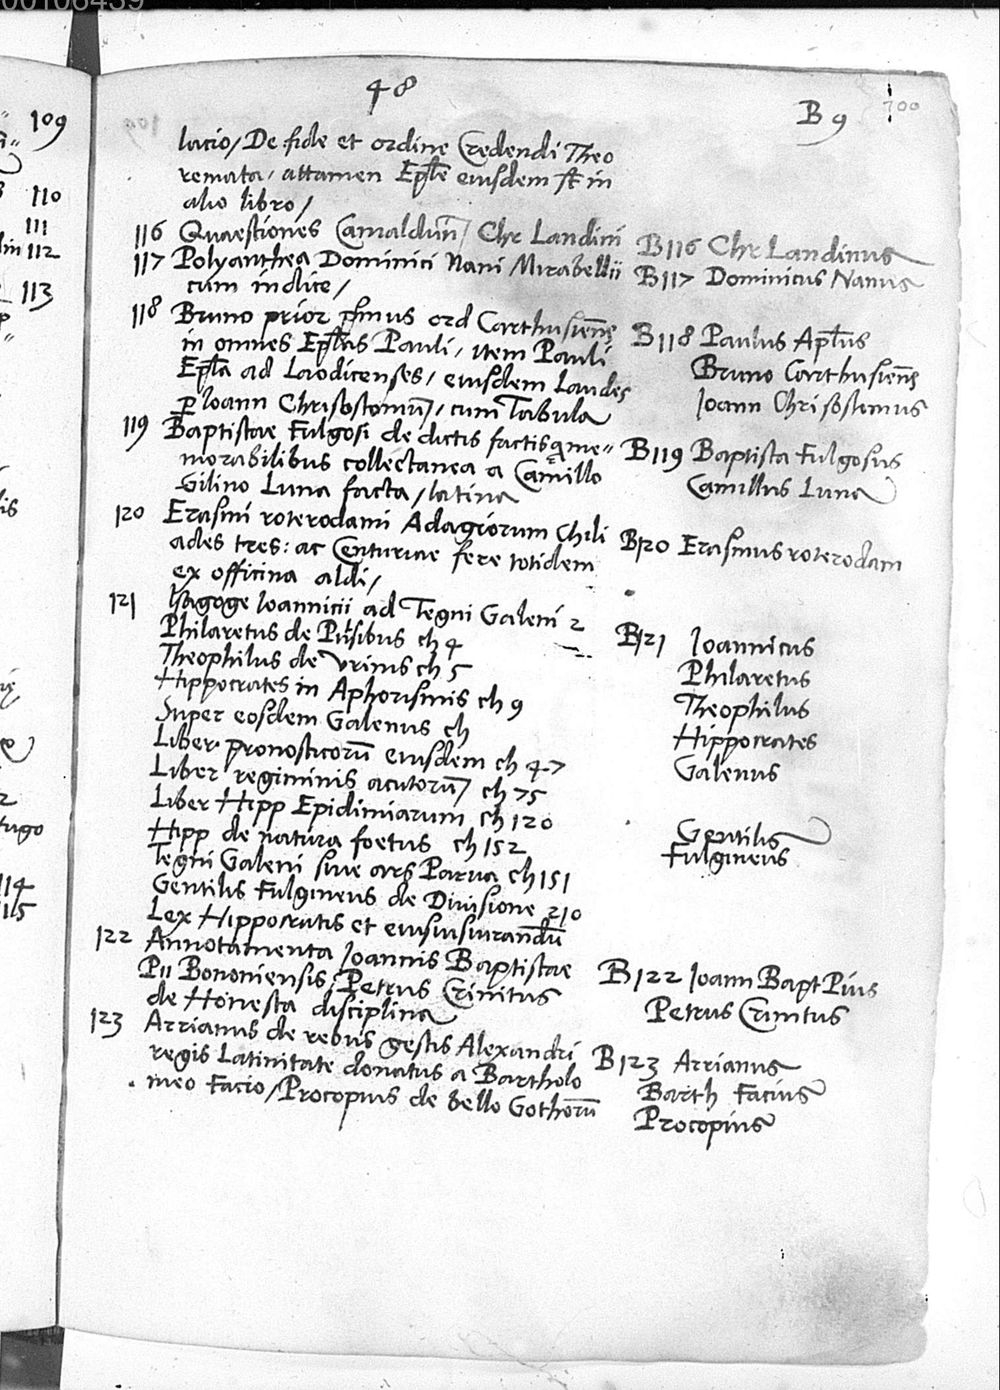 00106439
48
B 9
100
lacio / De fide et ordine Credendi Theo
remata, attamen Eple eiusdem st in
alio libro /
116 Quaestiones Camaldun / Chr Landini
B116 Chr Landinus
117 Polyanthea Dominici Nani Mirabellii
cum indice /
B117 Dominicus Nanus
118 Bruno prior primus ord Carthusiens
in omnes Eplas Pauli, item Pauli
Epla ad Laodicenses, eiusdem Laudes
p Ioann Chrisostomum, cum Tabula
B118 Paulus Aplus
Bruno Carthusiens
Ioann Chrisostimus
119 Baptistae Fulgosi de dictis factisq me=
morabilibus collectanea a Camillo
Gilino Luna facta / latina
B119 Baptista Fulgosus
Camillus Luna
120 Erasmi roterodami Adagiorum Chili
ades tres: ac Centuriae fere totidem
ex officina aldi /
B120 Erasmus roterodam
121 Isagoge Ioannicii ad Tegni Galeni 2
Philaretus de Pulsibus ch 4
Theophilus de Vrinis ch 5
Hippocrates in Aphorismis ch 9
Super eosdem Galenus ch
Liber pronosticorū eiusdem ch 47
Liber regiminis acutorū / ch 75
Liber Hipp Epidimiarum ch 120
Hipp de natura foetus ch 152
Tegni Galeni siue ars Parua ch 151
Gentilis Fulgineus de Diuisione 210
Lex Hippocratis et eiusiusiurandū
B121 Ioannicus
Philaretus
Theophilus
Hippocrates
Galenus
Gentilis
Fulgineus
122 Annotamenta Ioannis Baptistae
Pii Bononiensis: Petrus Crinitus
de Honesta disciplina
B122 Ioann Bapt Pius
Petrus Crinitus
123 Arrianus de rebus gestis Alexandri
regis Latinitate donatus a Bartholo
meo Facio / Procopius de bello Gothorū
B123 Arrianus
Barth Facius
Procopius
109
110
111
112
113
114
115